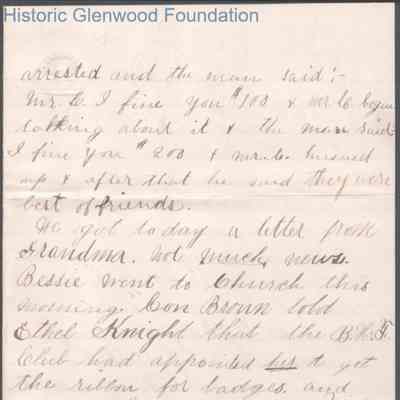 Historic Glenwood Foundation
arrested and the man said:-
Mr. C. I fine you $100 & Mr C. began
talking about it & the man said
I fine you $200 & Mr. C. hushed
up & after that he said they were
best of friends.
We got today a letter from
Grandma. Not much news.
Bessie went to Church this
morning. Con Brown told
Ethel Knight that the B.
Club had appointed her to get
the ribbon for badges and